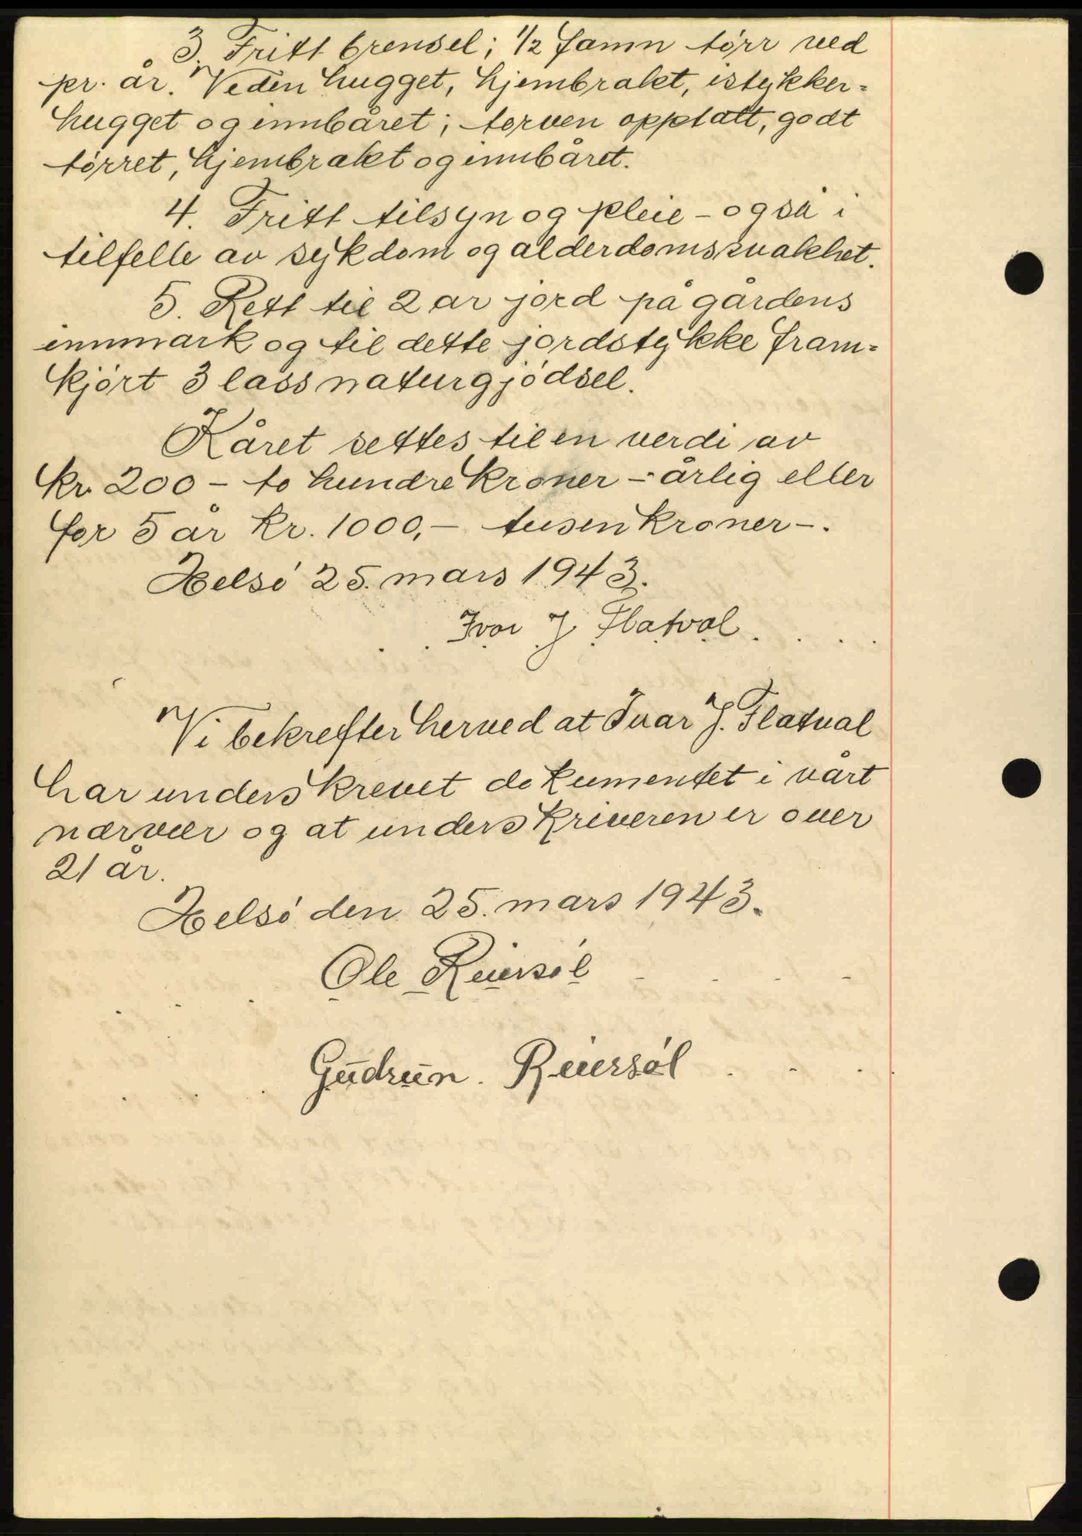 3. Fritt brensel; 1/2 famn tørr ved
pr. år. Veden hugget, hjembrakt, istykker-
hugget og innbåret; torven opptatt, godt
tørret, hjembrakt og innbåret.
4. Fritt tilsyn og pleie - også i
tilfelle av sykdom og alderdomssvakhet.
5. Rett til 2 ar jord på gårdens
innmark og til dette jordstykke fram-
kjørt 3 lass naturgjødsel.
Kåret settes til en verdi av
kr. 200 - to hundre kroner - årlig eller
for 5 år kr. 1000,- tusen kroner -.
Helsø 25. mars 1943.
Ivar J Flatval
Vi bekrefter herved at Ivar J. Flatval
har underskrevet dokumentet i vårt
nærvær og at underskriveren er over
21 år.
Helsø den 25. mars 1943.
Ole Reiersøl
Gudrun Reiersøl